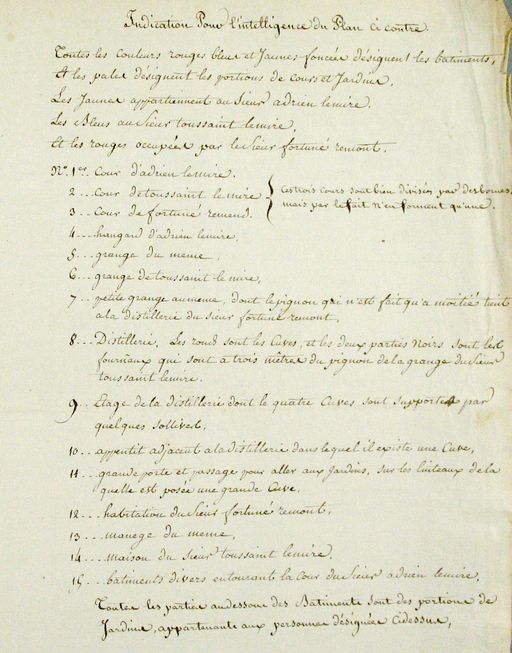 Indication Pour l'intelligence du Plan ci contre.
Toutes les couleurs rouges bleus et Jaunes foncées désignent les batiments,
et les pales désignent les portions de cours et Jardins.
Les Jaunes appartiennent au Sieur adrien lemire.
Les Bleus au Sieur toussaint lemire,
et les rouges occupées par le Sieur fortuné remont.
No. 1er. Cour d'adrien lemire.
2... Cour de toussaint le mire
3... Cour de fortuné remond.
ces trois cours sont bien divisées par des bornes,
mais par le fait n'en forment qu'une.
4... hangard d'adrien lemire,
5... grange du meme,
6... grange de toussaint le mire,
7... petite grange au meme, dont le pignon qui n'est fait qu'a moitié tient
a la distillerie du sieur fortuné remont,
8... Distillerie, les rond sont les Cuves, et les deux parties Noirs sont les
fourneaux qui sont a trois mètres du pignon de la grange du Sieur
toussaint lemire.
9... Etage de la distillerie dont le quatre Cuves sont supportés par
quelques sollives,
10... appentit adjacent a la distillerie dans lequel il existe une Cuve,
11... grande porte et passage pour aller aux Jardins, sur les linteaux de la
quelle est posée une grande Cuve.
12... habitation du Sieur fortuné remont,
13... manege du meme,
14... maison du sieur toussaint lemire.
15... batiments divers entourant la Cour du Sieur adrien lemire.
Toutes les parties au dessous des Batiments sont des portions de
Jardins, appartenants aux personnes désignées Cidessus,